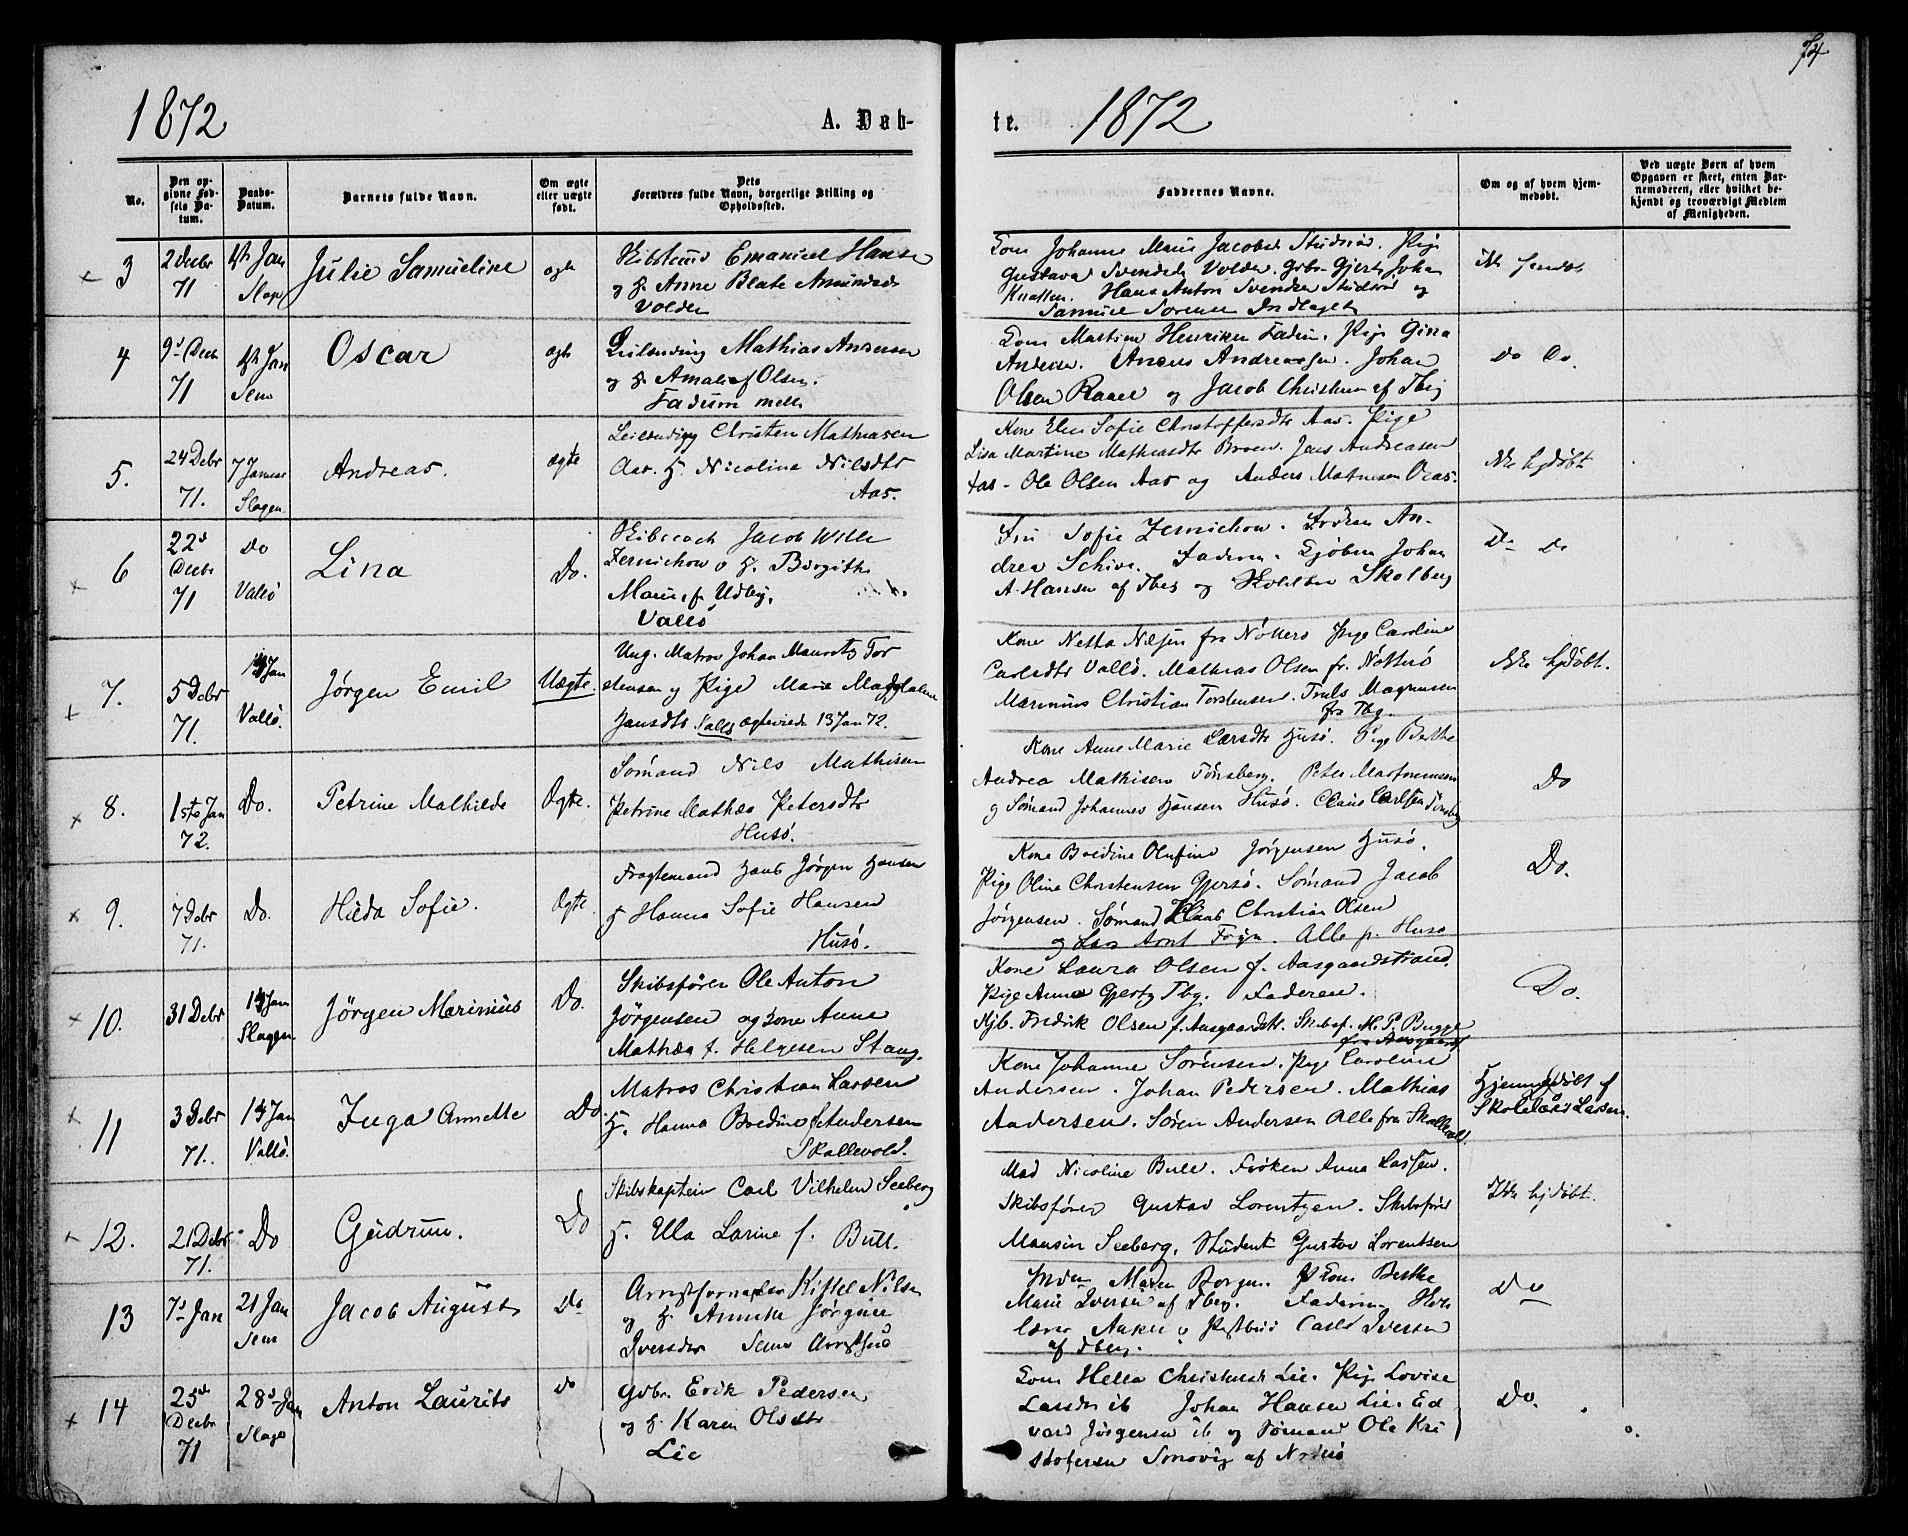 74
1872
A. Døb-
te.
1872
No.
Den op-
givne Fød-
sels Da-
tum.
Daabs-
Datum.
Barnets fulde Navn.
Om ægte
eller uægte
født.
Dets
Forældres fulde Navn, borgerlige Stilling og
Opholdssted.
Faddernes Navne.
Om og af hvem hjem-
medøbt.
Ved uægte Børn af hvem
Opgaven er skeet, enten Bar-
nemoderen, eller hvilket be-
kjendt og troværdigt Medlem
af Menigheden.
3
2 Decbr
71
Jan
Slag
Julie Samueline
ægte
Emanuel Hansen
og H. Anne Beate Amundsdr
Volden
Johanne Marie Jacobsd Studsrød. Pige
Gustava Svendsd Volden. Gbr. Gjert Johan
Knatten. Hans Anton Svendsen Studsrød og
Samuel Sørensen Indlaget
4
9d Decb
71
Jan
Sem
Oscar
ægte
Leilænding Mathias Andersen
og H. Amalie f Olsen.
Fadum mell
Kone Martine Henriksen Fadum. Pige Gina
Andersen. Andreassen. Johan
Olsen Raael og Jacob Christensen af Tbg
Do Do.
5.
24 Debr
71.
7 Januar
Slagen
Andreas.
Ægte
Leilænding Christen Mathiasen
Aas. H. Nicoline Nilsdtr
Aas.
Kone Elen Sofie Christoffersdtr Aas. Pige
Lisa Martine Mathiasdtr Broen. Jens Andreasen
Aas. Ole Olsen Aas og Anders Mathiesen Aas.
Ikke hjdøbt
6
22d
Decbr
71
Do
Vallø
Lina
Do.
Jacob Wille
Zernichow o H. Birgithe
Marie f. Udbye,
Vallø
Sofie Zernichow. Frøken An-
drea Schive. Faderen. Johan
A. Hansen af Tbg og Skolberg
Do Do
7.
5 Debr
71.
14 Jan
Vallø.
Jørgen Emil
Uægte.
Ung. Matros Johan Mauritz Tor
stensen og Pige Marie Magdalene
Hansdtr Vallø ægteviede 13 Jan 72.
Kone Netta Nilsen fra Nøtterø Pige Caroline
Carlsdtr Vallø. Mathias Olsen fr. Nøtterø
Marinius Christian Torstensen. Truls Magnussen
fra Tbg.
Ikke hjdøbt.
8.
1ste Jan
72.
Do.
Petrine Mathilde
Ægte.
Sømand Nils Mathisen
Petrine Mathea Petersdtr
Husø.
Kone Anne Marie Larsdtr Husø. Pige Berthe
Andrea Mathisen Tønsberg. Peter Martinussen
og Sømand Johannes Hansen Husø. Claus Carlsen Tønsberg
Do
9.
7 Debr
71.
Do.
Hilda Sofie.
Ægte.
Fragtemand Hans Jørgen Hansen
H Hanna Sofie Hansen
Husø.
Kone Boedine Olufine Jørgensen Husø.
Pige Olina Christensen Gjersø. Sømand Jacob
Jørgensen. Sømand Claus Christian Olsen
og Lars Arnt Alle fr. Husø
Do.
10.
31 Debr
14 Jan
Slagen
Jørgen Marinius
Do.
Skibsfører Ole Anton
Jørgensen og Kone Anne
Mathea f. Helgesen Stang.
Kone Laura Olsen f. Aasgaardstrand.
Pige Anna Gjertz Tbg. Faderen.
Kjb. Fredrik Olsen f. Aasgaardstr. Skibsf. M. P. Bugge
fra Aasgaardst
Do.
11
3 Debr
71.
14 Jan
Vallø.
Inga Annette
Do.
Matros Christian Larsen
H. Hanna Boedine f. Andersen
Skallevold.
Kone Johanne Sørensen. Pige Caroline
Andersen. Johan Pedersen. Mathias
Andersen. Søren Andersen Alle fra Skallevold.
Hjemmedøbt af
Skolelærer Larsen.
12.
21 Debr
71.
Do
Gudrun.
Do
Skibskaptein Carl Vilhelm Seeberg
H. Ella Larine f. Bull.
Mad Nicoline Bull. Frøken Anna Lassen.
Skibsfører Gustav Lorentzen. Skibsfører
Mansin Seeberg. Student Gustav Lorentsen
Ikke hjdøbt.
13
7d Jan
21 Jan
Sem
Jacob August
Do
Arrestforvarer Kittel Nilsen
og H. Annette Jørgine
Iversdtr Sems Arresthus
Maren Borgen. Kone Berthe
Marie Iversen af Tbeg. Faderen
lærer Aaker o Carl Iversen
af Tbeg.
Do
14
25d
Decbr
71
28d Jan
Slage
Anton Laurits
Do
Gdbr. Erik Pedersen
og H. Karen Olsdtr
Lie
Kone Helle Christensdr Lie. Pige Lovise
Larsdr ib Johan Hansen Lie. Ed
vard Jørgensen ib og Sømand Ole Kri
stofersen Smovig af Nøtterø
Do.